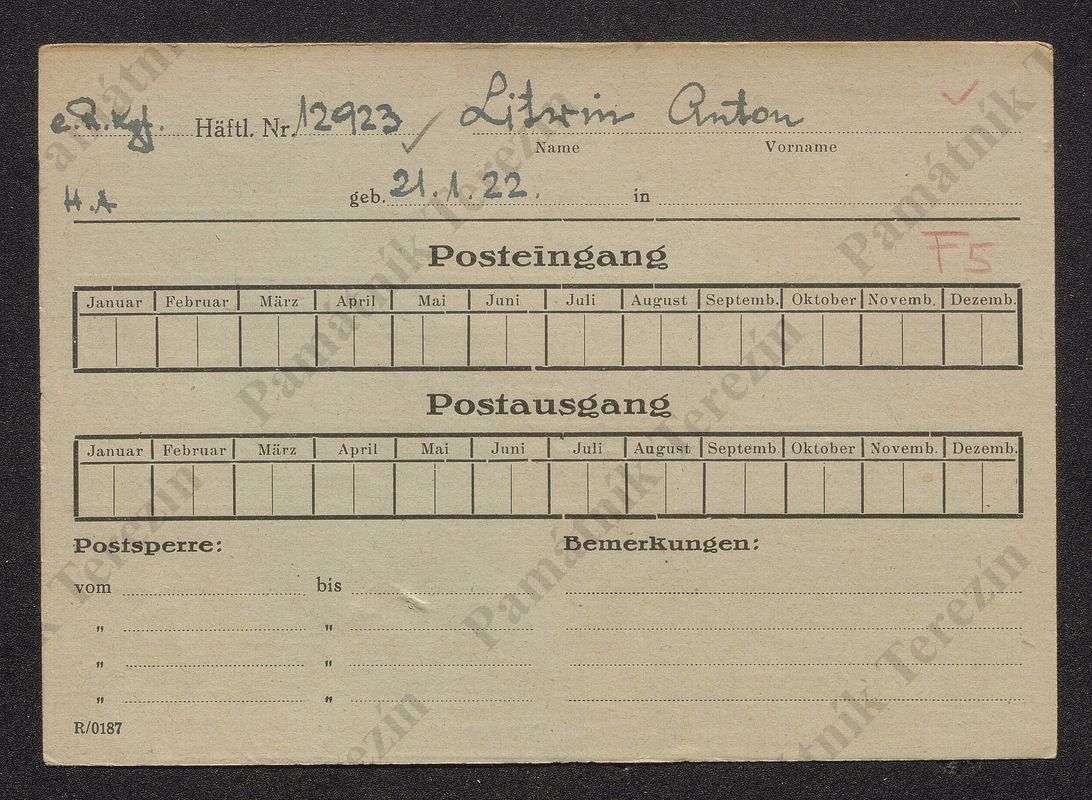 e.R.Kgf. Häftl. Nr. 12923 Litwin Anton
Name Vorname
H.A geb. 21.1.22. in
Posteingang
F5
Januar Februar März April Mai Juni Juli August Septemb. Oktober Novemb. Dezemb.
Postausgang
Januar Februar März April Mai Juni Juli August Septemb. Oktober Novemb. Dezemb.
Postsperre: Bemerkungen:
vom bis
" "
" "
" "
R/0187
Památník Terezín